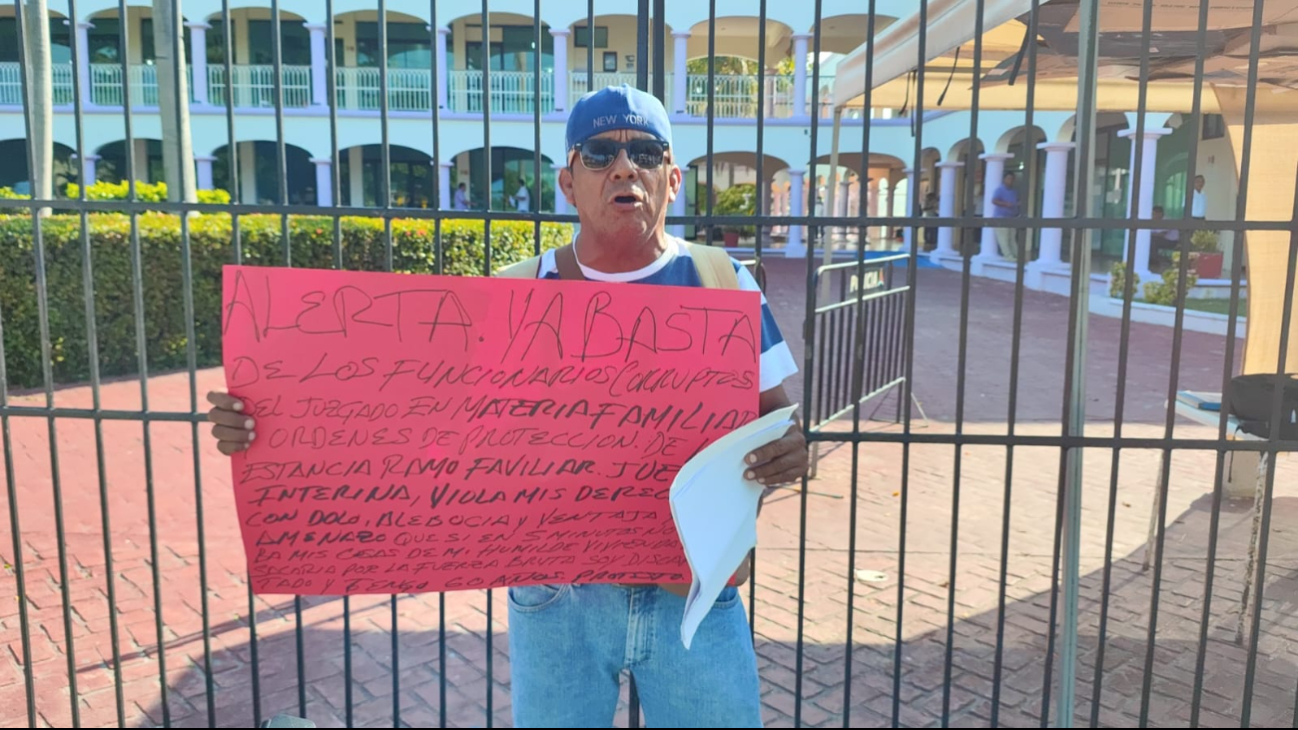 NEW YORK
ALERTA. YA BASTA
DE LOS FUNCIONARIOS CORRUPTOS
DEL JUZGADO EN MATERIA FAMILIAR
ORDENES DE PROTECCION. DE
ESTANCIA RAMO FAVILIAR. JUE
INTERINA, VIOLA MIS DEREC
CON DOLO, ALEBOCIA Y VENTAJA,
AMENAZO QUE SI EN 5 MINUTOS NO
BA MIS COSAS DE MI HUMILDE VIVIENDA
SACARIA POR LA FUERZA BRUTA SOY DISCAPA
TADO Y TENGO 60 AÑOS PROTESTO